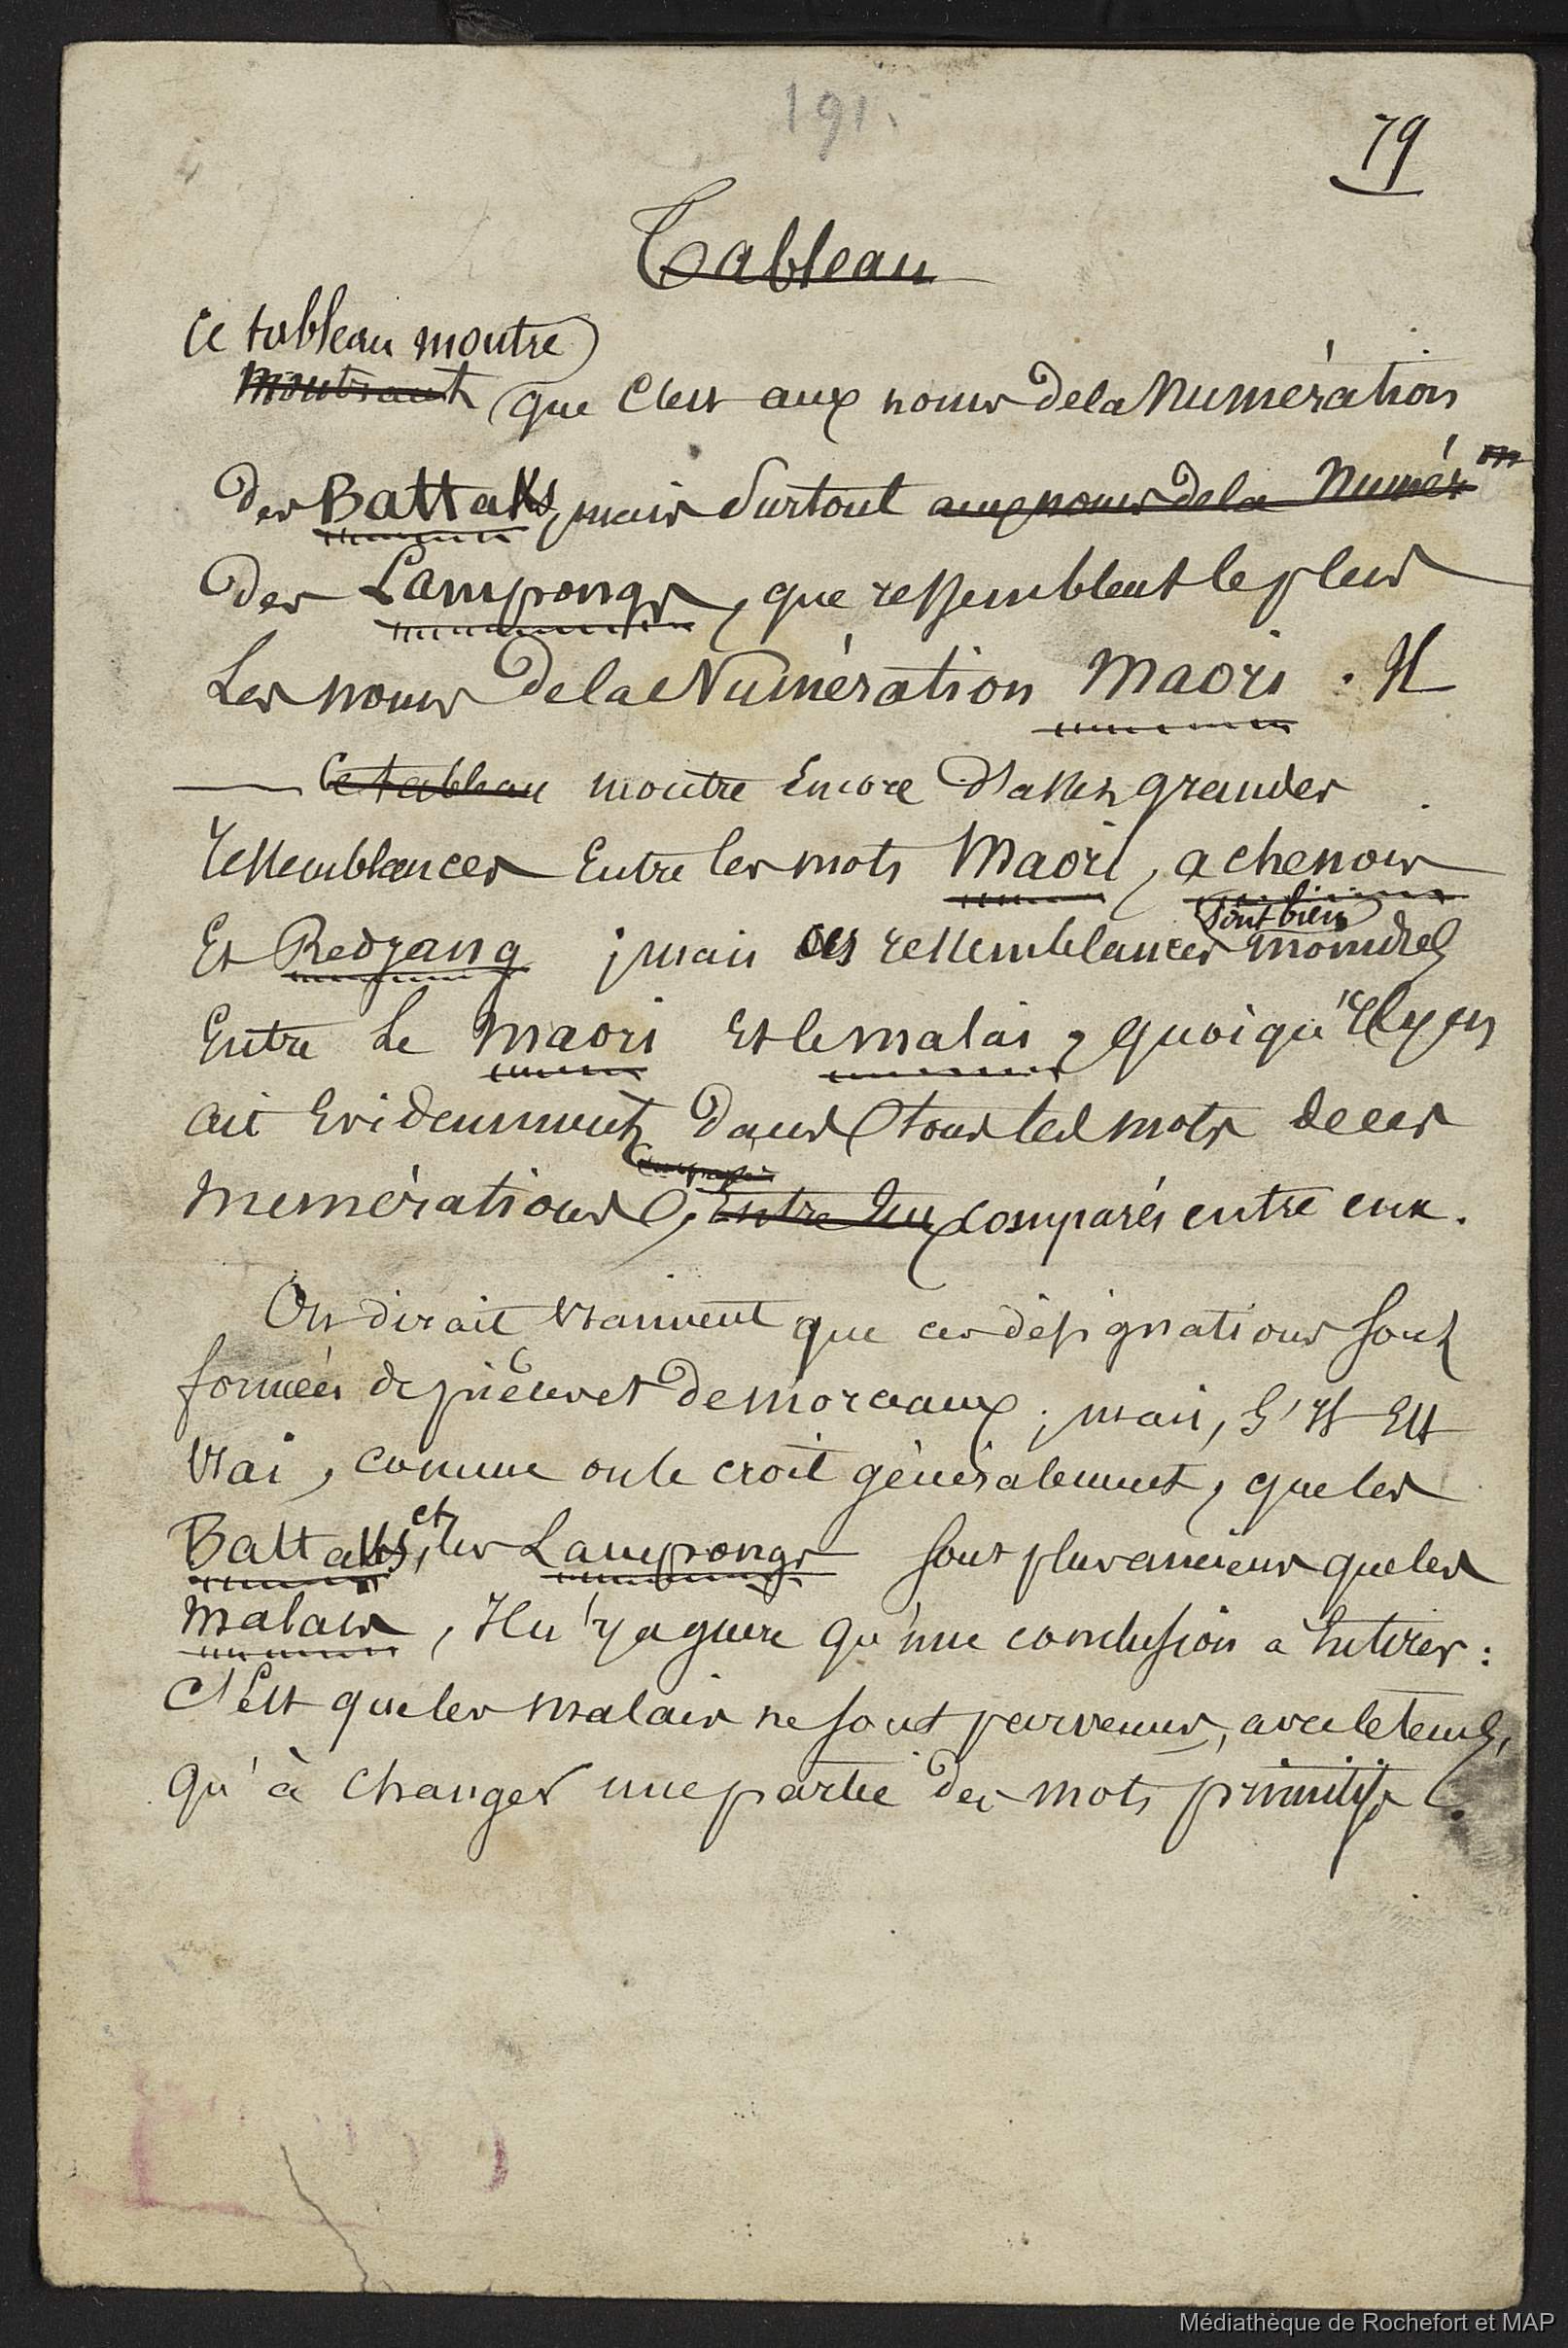 191.
79
Tableau
Ce tableau montre
Montrant que c'est aux noms de la Numération
des Battaks, mais surtout aux noms de la Numér on
des Lampongs, que ressemblent le plus
Les noms de la Numération Maori. Il
Ce tableau montre Encore d'assez grandes
ressemblances Entre les mots Maori, achenois
sont bien
Et Redjang ; mais ces ressemblances moindres
Entre Le Maori Et le malai, quoiqu'Il y en
ait Evidemment dans tous les mots de ces
numérations, Entre Eux comparés entre eux.
On dirait vraiment que ces désignations sont
formées de pièces et de morceaux ; mais, S'Il Est
vrai, comme on le croit généralement, que les
et
Battaks, les Lampongs sont plus anciens que les
malais, Il n'y a guère qu'une conclusion à En tirer :
C'est que les malais ne sont parvenus, avec le temps,
qu'à changer une partie des mots primitifs.
Médiathèque de Rochefort et MAP